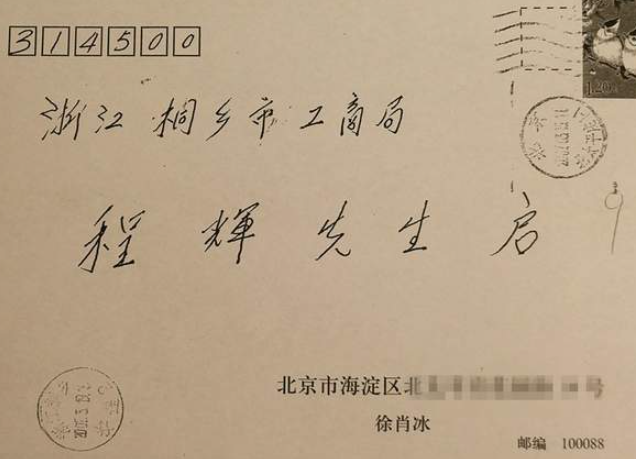 314500
1.20元
浙江 桐乡市工商局
程 辉 先生 启
9
北京市海淀区北
徐肖冰
邮编 100088